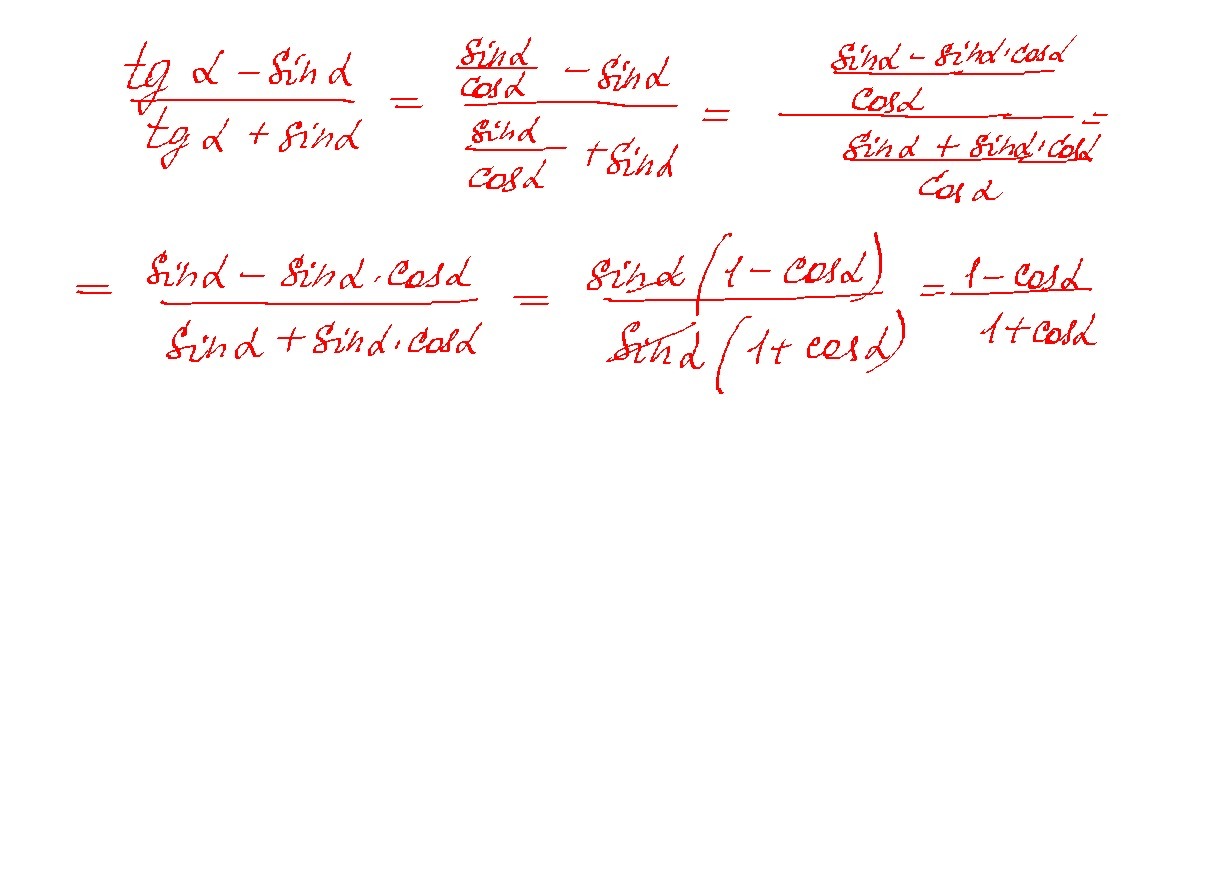 (tg α − sin α)/(tg α + sin α) = (sin α/cos α − sin α)/(sin α/cos α + sin α) = ((sin α − sin α · cos α)/cos α)/((sin α + sin α · cos α)/cos α) =
= (sin α − sin α · cos α)/(sin α + sin α · cos α) = (sin α (1 − cos α))/(sin α (1 + cos α)) = (1 − cos α)/(1 + cos α)